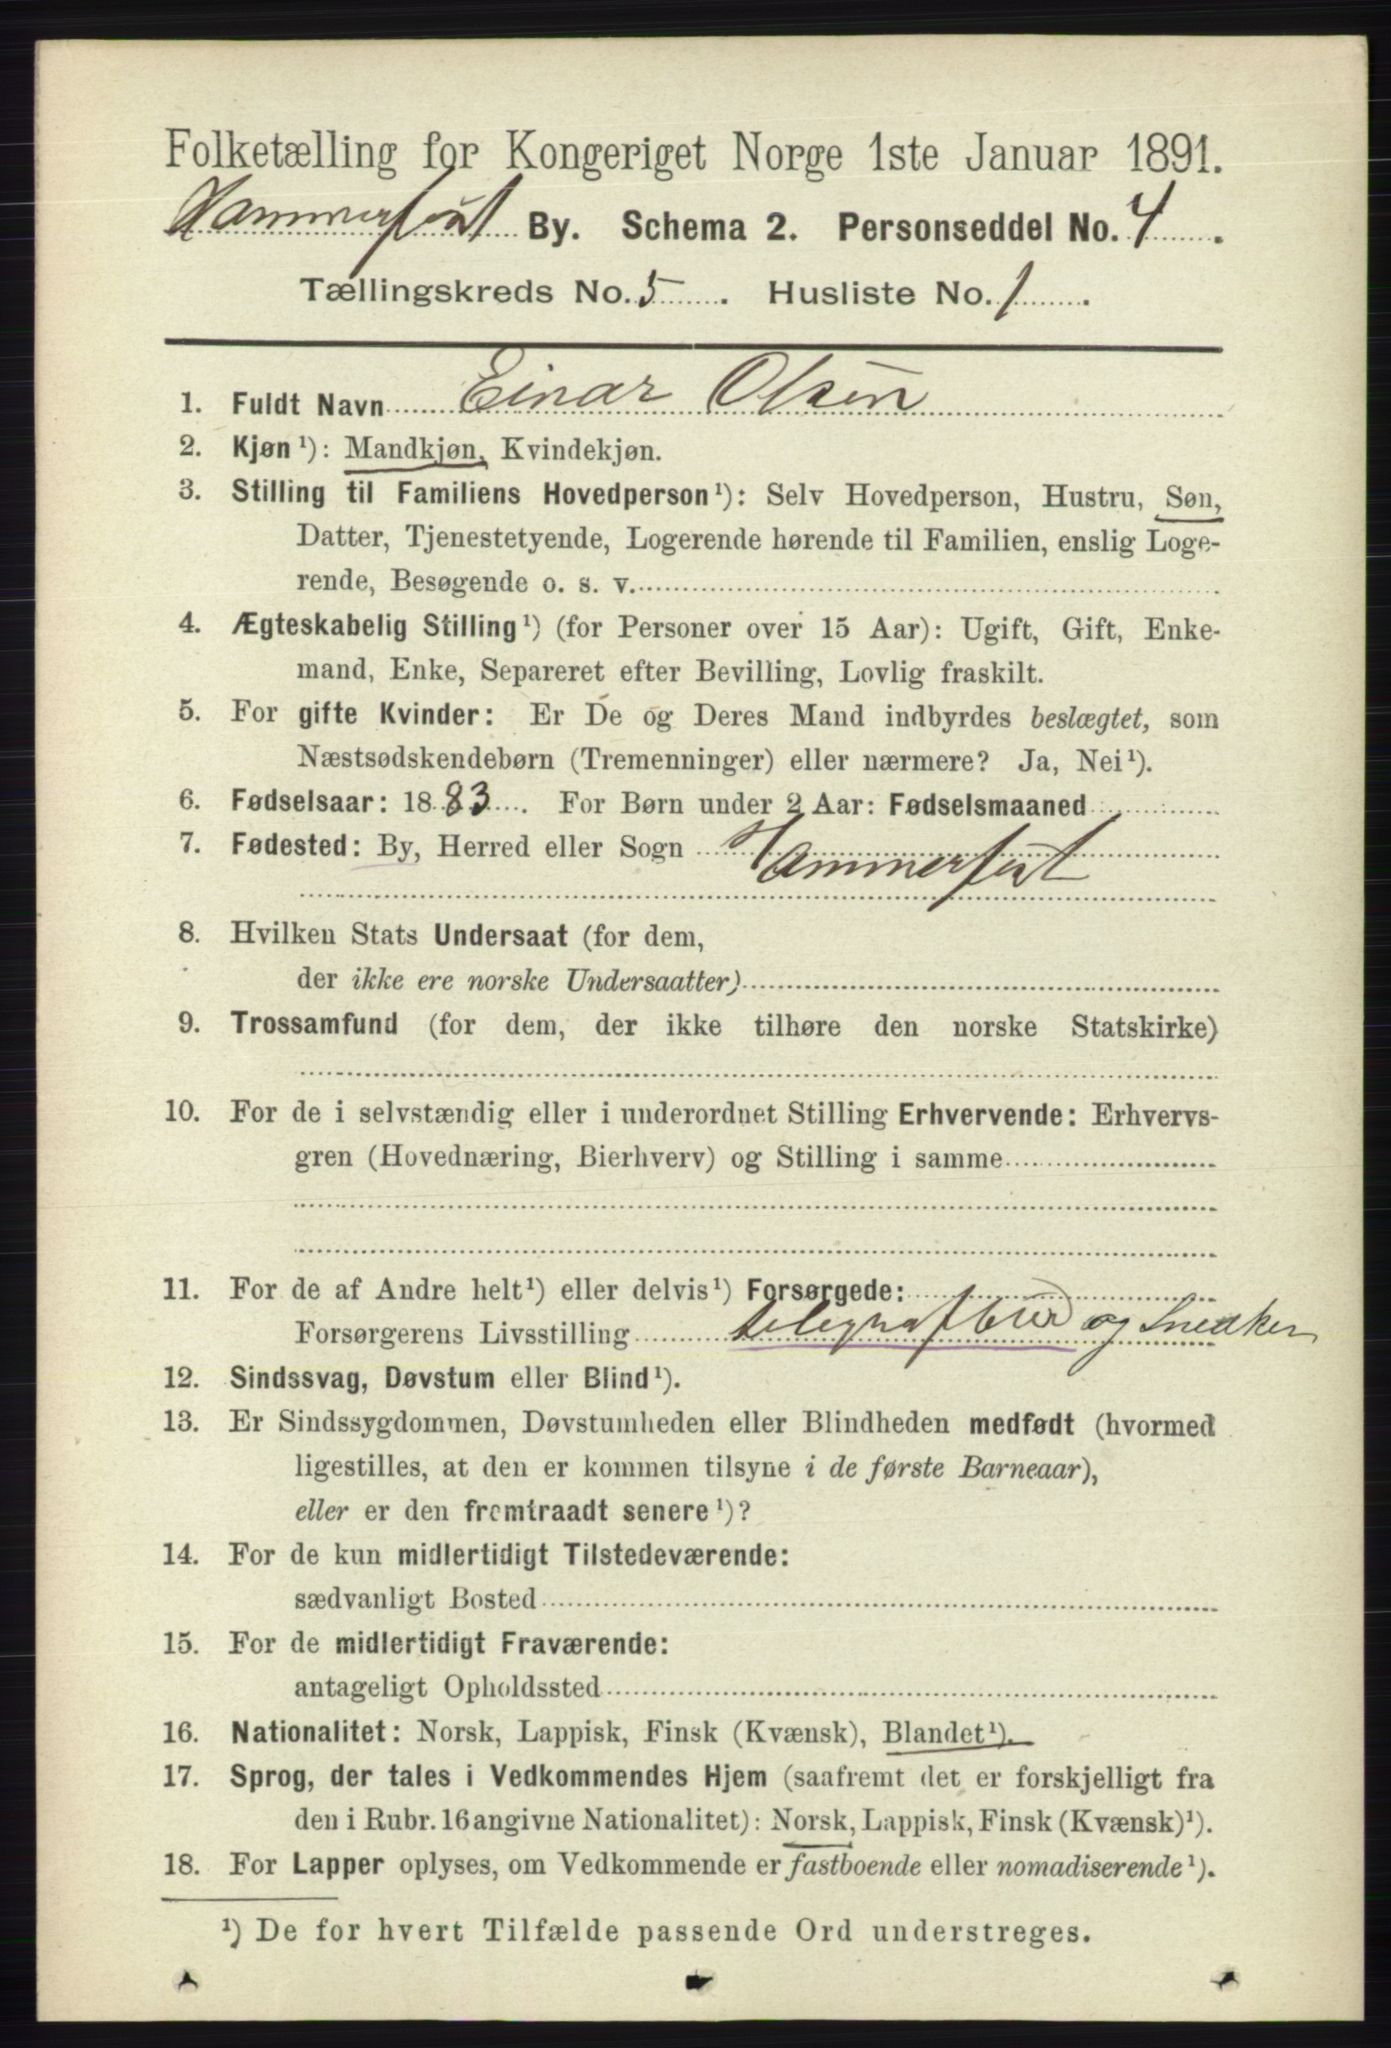 Folketælling for Kongeriget Norge 1ste Januar 1891.
Hammerfest By. Schema 2. Personseddel No. 4.
Tællingskreds No. 5. Husliste No. 1.
1. Fuldt Navn Einar Olsen
2. Kjøn¹): Mandkjøn, Kvindekjøn.
3. Stilling til Familiens Hovedperson¹): Selv Hovedperson, Hustru, Søn,
Datter, Tjenestetyende, Logerende hørende til Familien, enslig Loge-
rende, Besøgende o. s. v.
4. Ægteskabelig Stilling¹) (for Personer over 15 Aar): Ugift, Gift, Enke-
mand, Enke, Separeret efter Bevilling, Lovlig fraskilt.
5. For gifte Kvinder: Er De og Deres Mand indbyrdes beslægtet, som
Næstsødskendebørn (Tremenninger) eller nærmere? Ja, Nei¹).
6. Fødselsaar: 1883. For Børn under 2 Aar: Fødselsmaaned
7. Fødested: By, Herred eller Sogn Hammerfest
8. Hvilken Stats Undersaat (for dem,
der ikke ere norske Undersaatter)
9. Trossamfund (for dem, der ikke tilhøre den norske Statskirke)
10. For de i selvstændig eller i underordnet Stilling Erhvervende: Erhvervs-
gren (Hovednæring, Bierhverv) og Stilling i samme
11. For de af Andre helt¹) eller delvis¹) Forsørgede:
Forsørgerens Livsstilling telegrafbud og Snedker
12. Sindssvag, Døvstum eller Blind¹).
13. Er Sindssygdommen, Døvstumheden eller Blindheden medfødt (hvormed
ligestilles, at den er kommen tilsyne i de første Barneaar),
eller er den fremtraadt senere¹)?
14. For de kun midlertidigt Tilstedeværende:
sædvanligt Bosted
15. For de midlertidigt Fraværende:
antageligt Opholdssted
16. Nationalitet: Norsk, Lappisk, Finsk (Kvænsk), Blandet¹).
17. Sprog, der tales i Vedkommendes Hjem (saafremt det er forskjelligt fra
den i Rubr. 16 angivne Nationalitet): Norsk, Lappisk, Finsk (Kvænsk)¹).
18. For Lapper oplyses, om Vedkommende er fastboende eller nomadiserende¹).
¹) De for hvert Tilfælde passende Ord understreges.